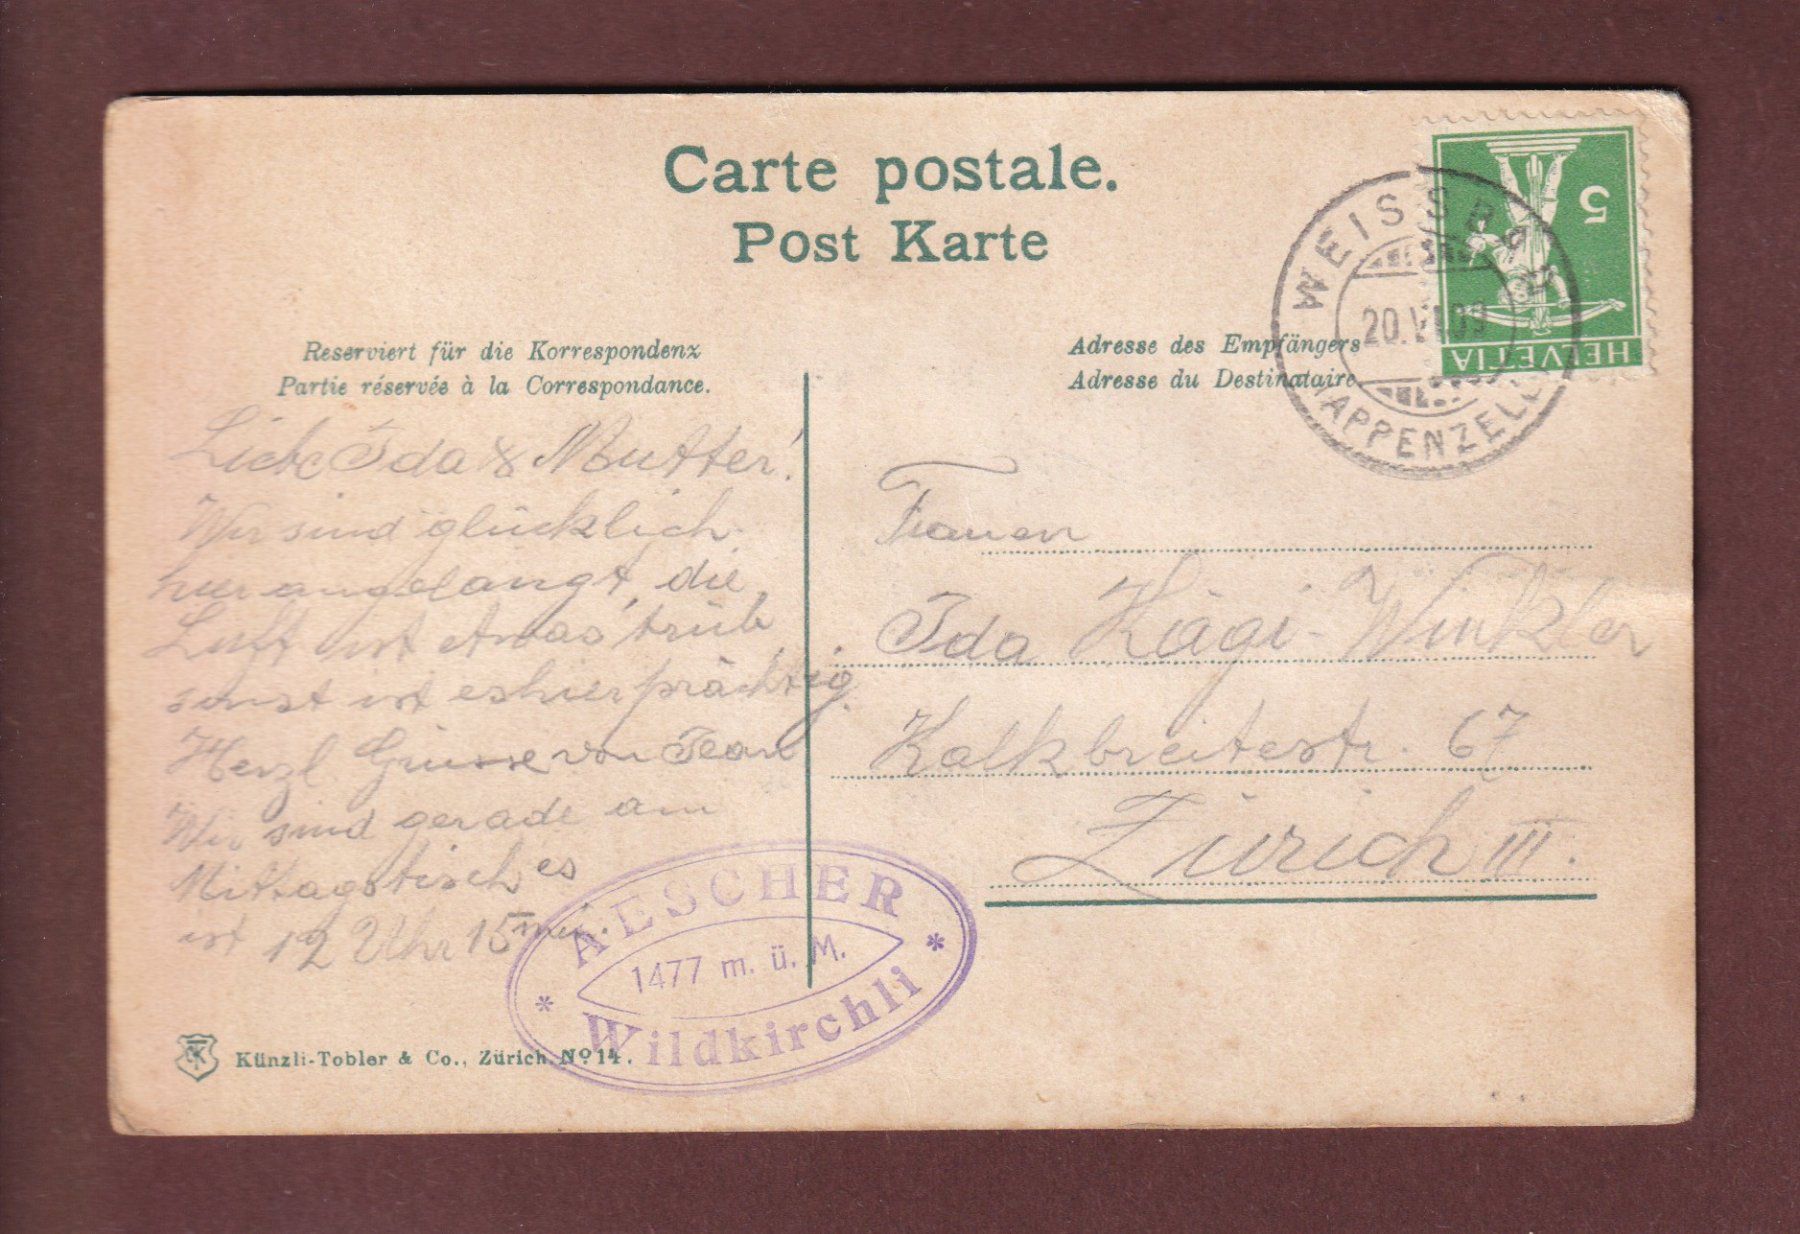 Carte postale.
Post Karte
Reserviert für die Korrespondenz
Partie réservée à la Correspondance.
Adresse des Empfängers
Adresse du Destinataire
HELVETIA
5
WEISSBAD
20.VI.09
(APPENZELL)
Liebe Ida & Mutter!
Wir sind glücklich
hier angelangt, die
Luft ist etwas trüb
sonst ist es hier prächtig.
Herzl Grüsse von Jean
Wir sind gerade am
Mittagstisch es
ist 12 Uhr 15 min.
Frauen
Ida Kägi-Winkler
Kalkbreitestr. 67
Zürich III.
AESCHER
1477 m. ü. M.
Wildkirchli
Künzli-Tobler & Co., Zürich. No 14.